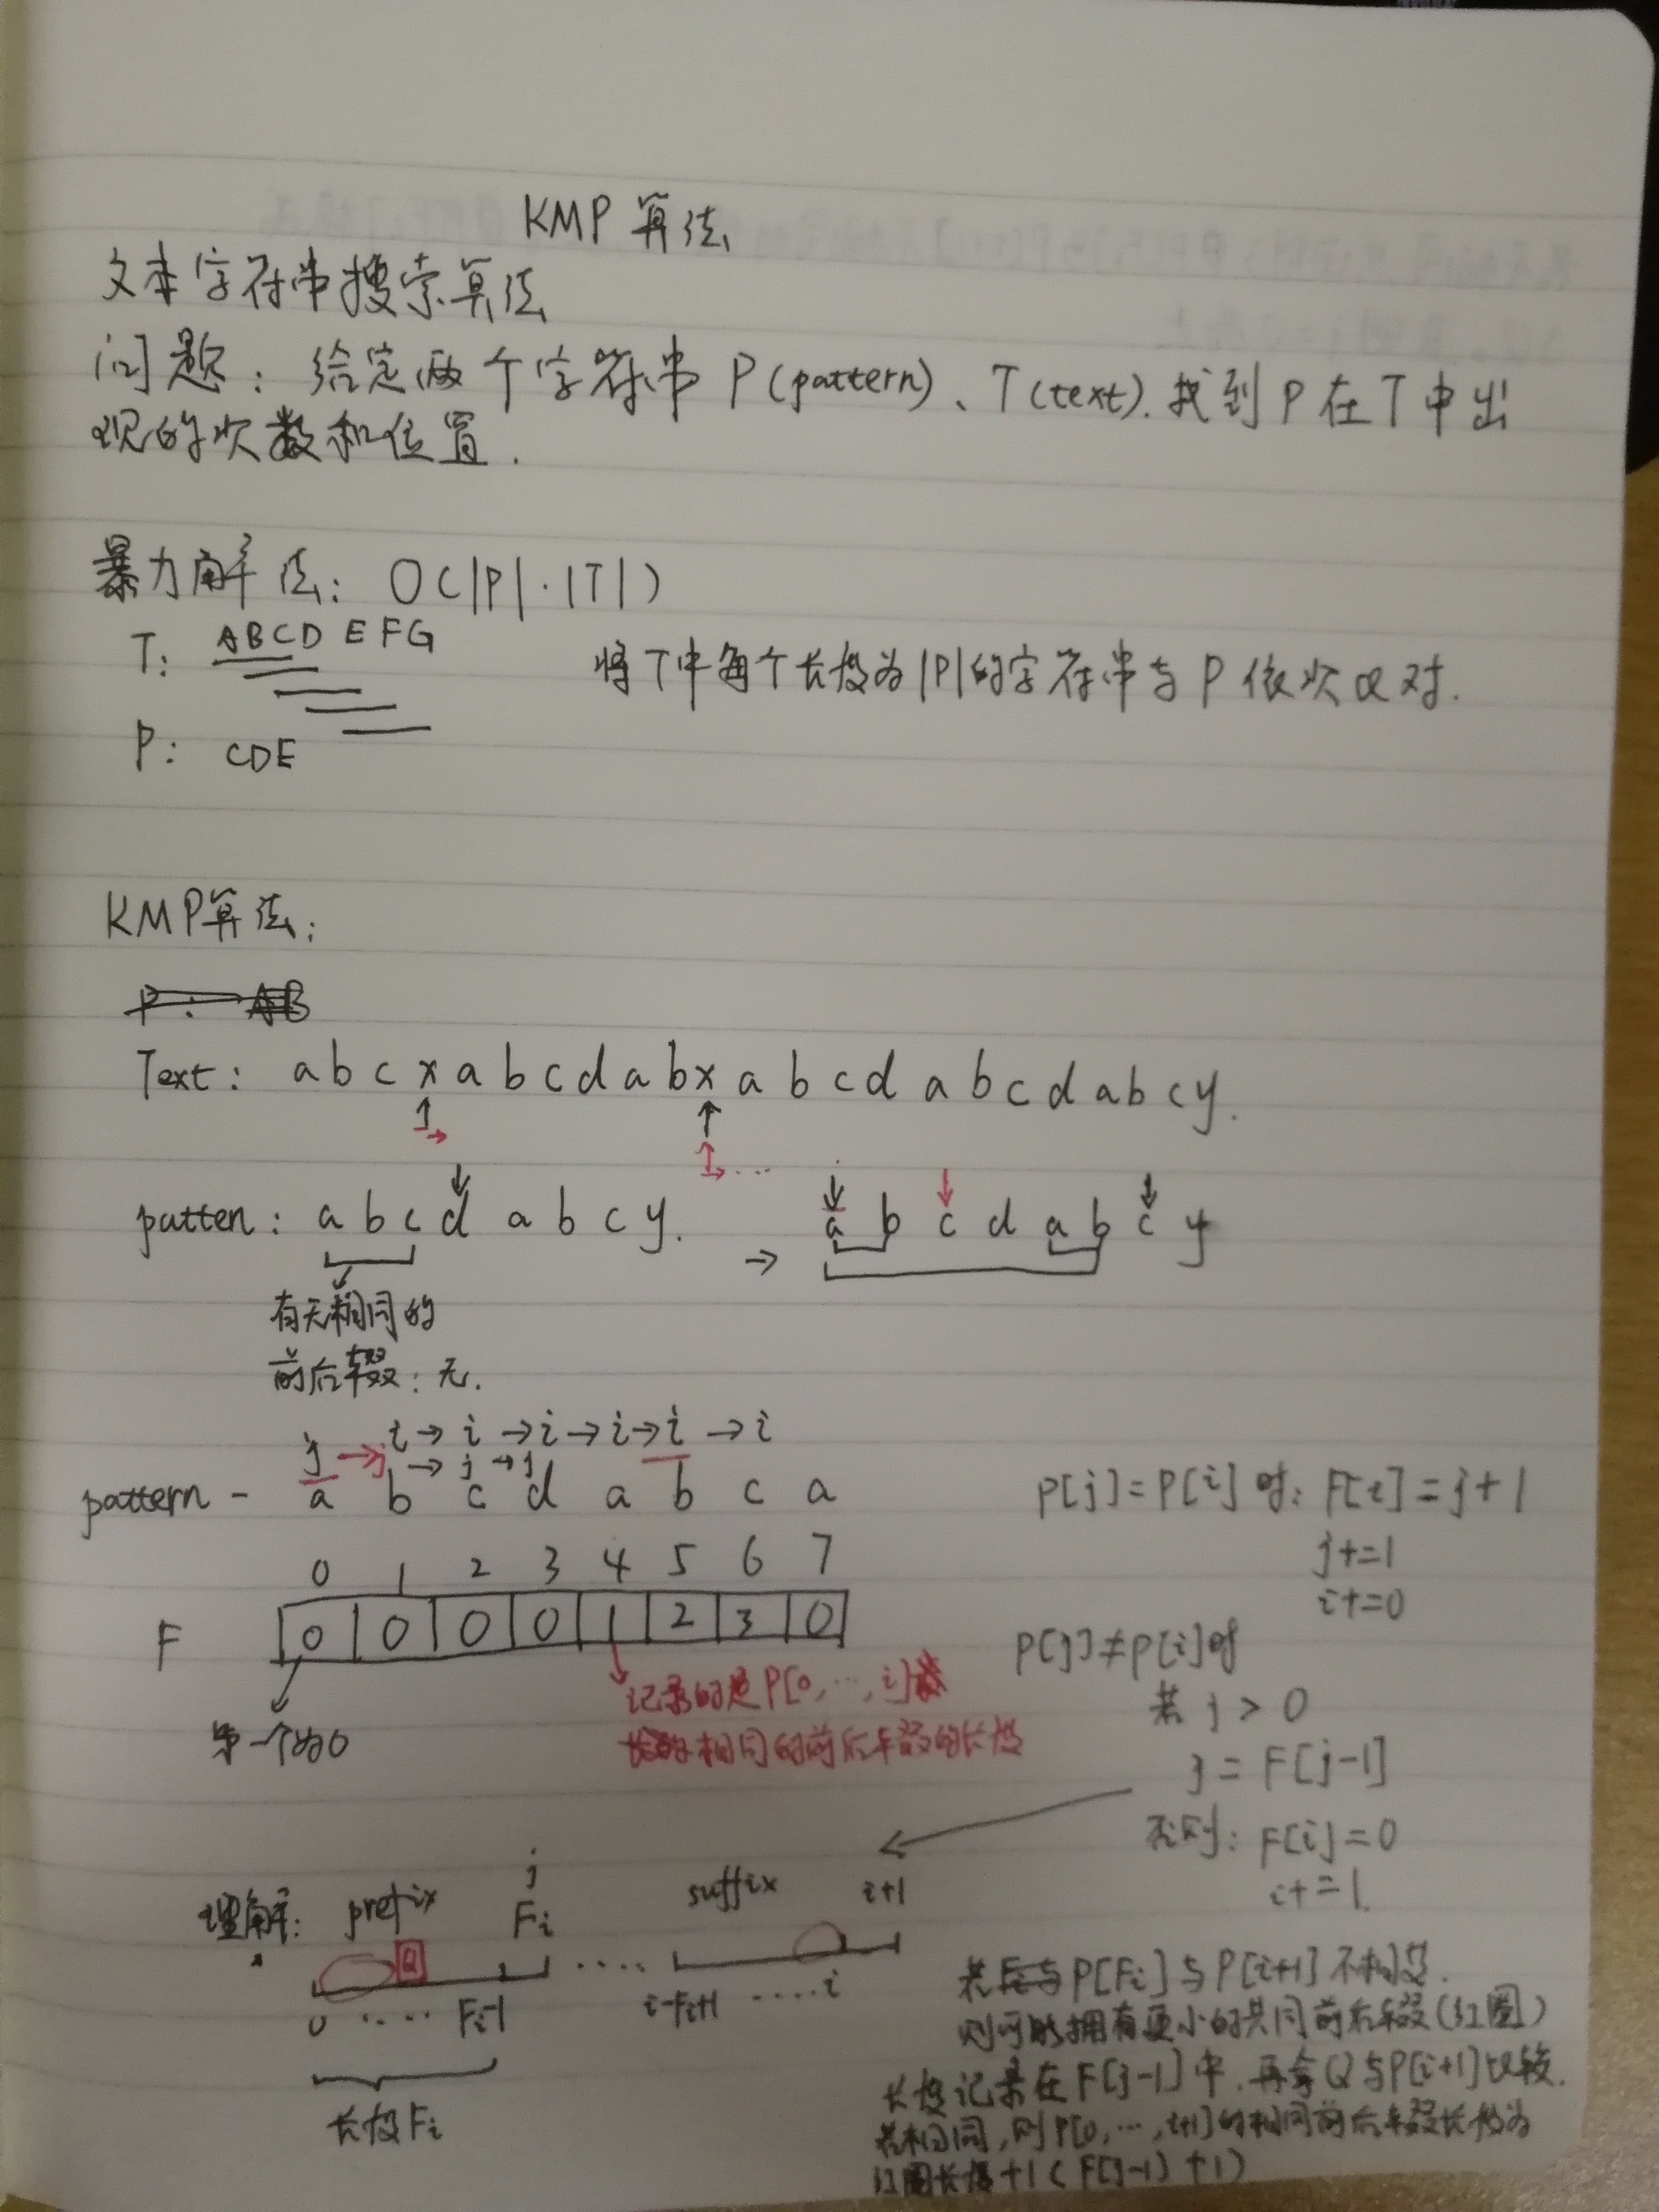 KMP 算法
文本字符串搜索算法
问题：给定两个字符串 P(pattern)、T(text). 找到 P 在 T 中出
现的次数和位置.
暴力解法: O(|P|·|T|)
T: ABCD EFG
将T中每个长度为|P|的字符串与 P 依次比对.
P: CDE
KMP算法:
P: AB
Text: a b c x a b c d a b x a b c d a b c d a b c y.
patten: a b c d a b c y. → a b c d a b c y
有无相同的
前后缀: 无.
j → j → j → j
i → i → i → i → i → i
pattern - a b c d a b c a
0 1 2 3 4 5 6 7
F 0 0 0 0 1 2 3 0
第一个为0
记录的是P[0,…,i]最
长的相同的前后缀的长度
P[j]=P[i] 时: F[i]=j+1
j+=1
i+=0
P[j]≠P[i]时
若 j > 0
j = F[j-1]
否则: F[i]=0
i+=1.
理解: prefix j Fi suffix i+1
Q
0 ····· Fi-1 ····· i-Fi+1 ····· i
长度Fi
若Fi与 P[Fi] 与 P[i+1] 不相同.
则可能拥有更小的共同前后缀(红圈)
长度记录在F[j-1]中. 再拿Q与P[i+1]比较.
若相同, 则P[0,…,i+1]的相同前后缀长度为
红圈长度+1 ( F[j-1]+1)